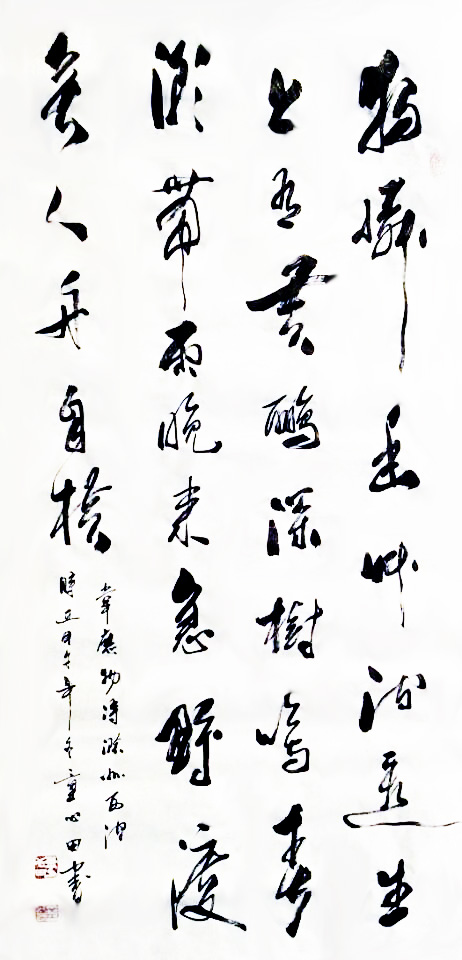 獨憐幽艸澗邊生
上有黄鸝深樹鳴春
潮帶雨晚来急野渡
無人舟自横
韋應物詩滁州西澗
時在甲午年冬童心田書